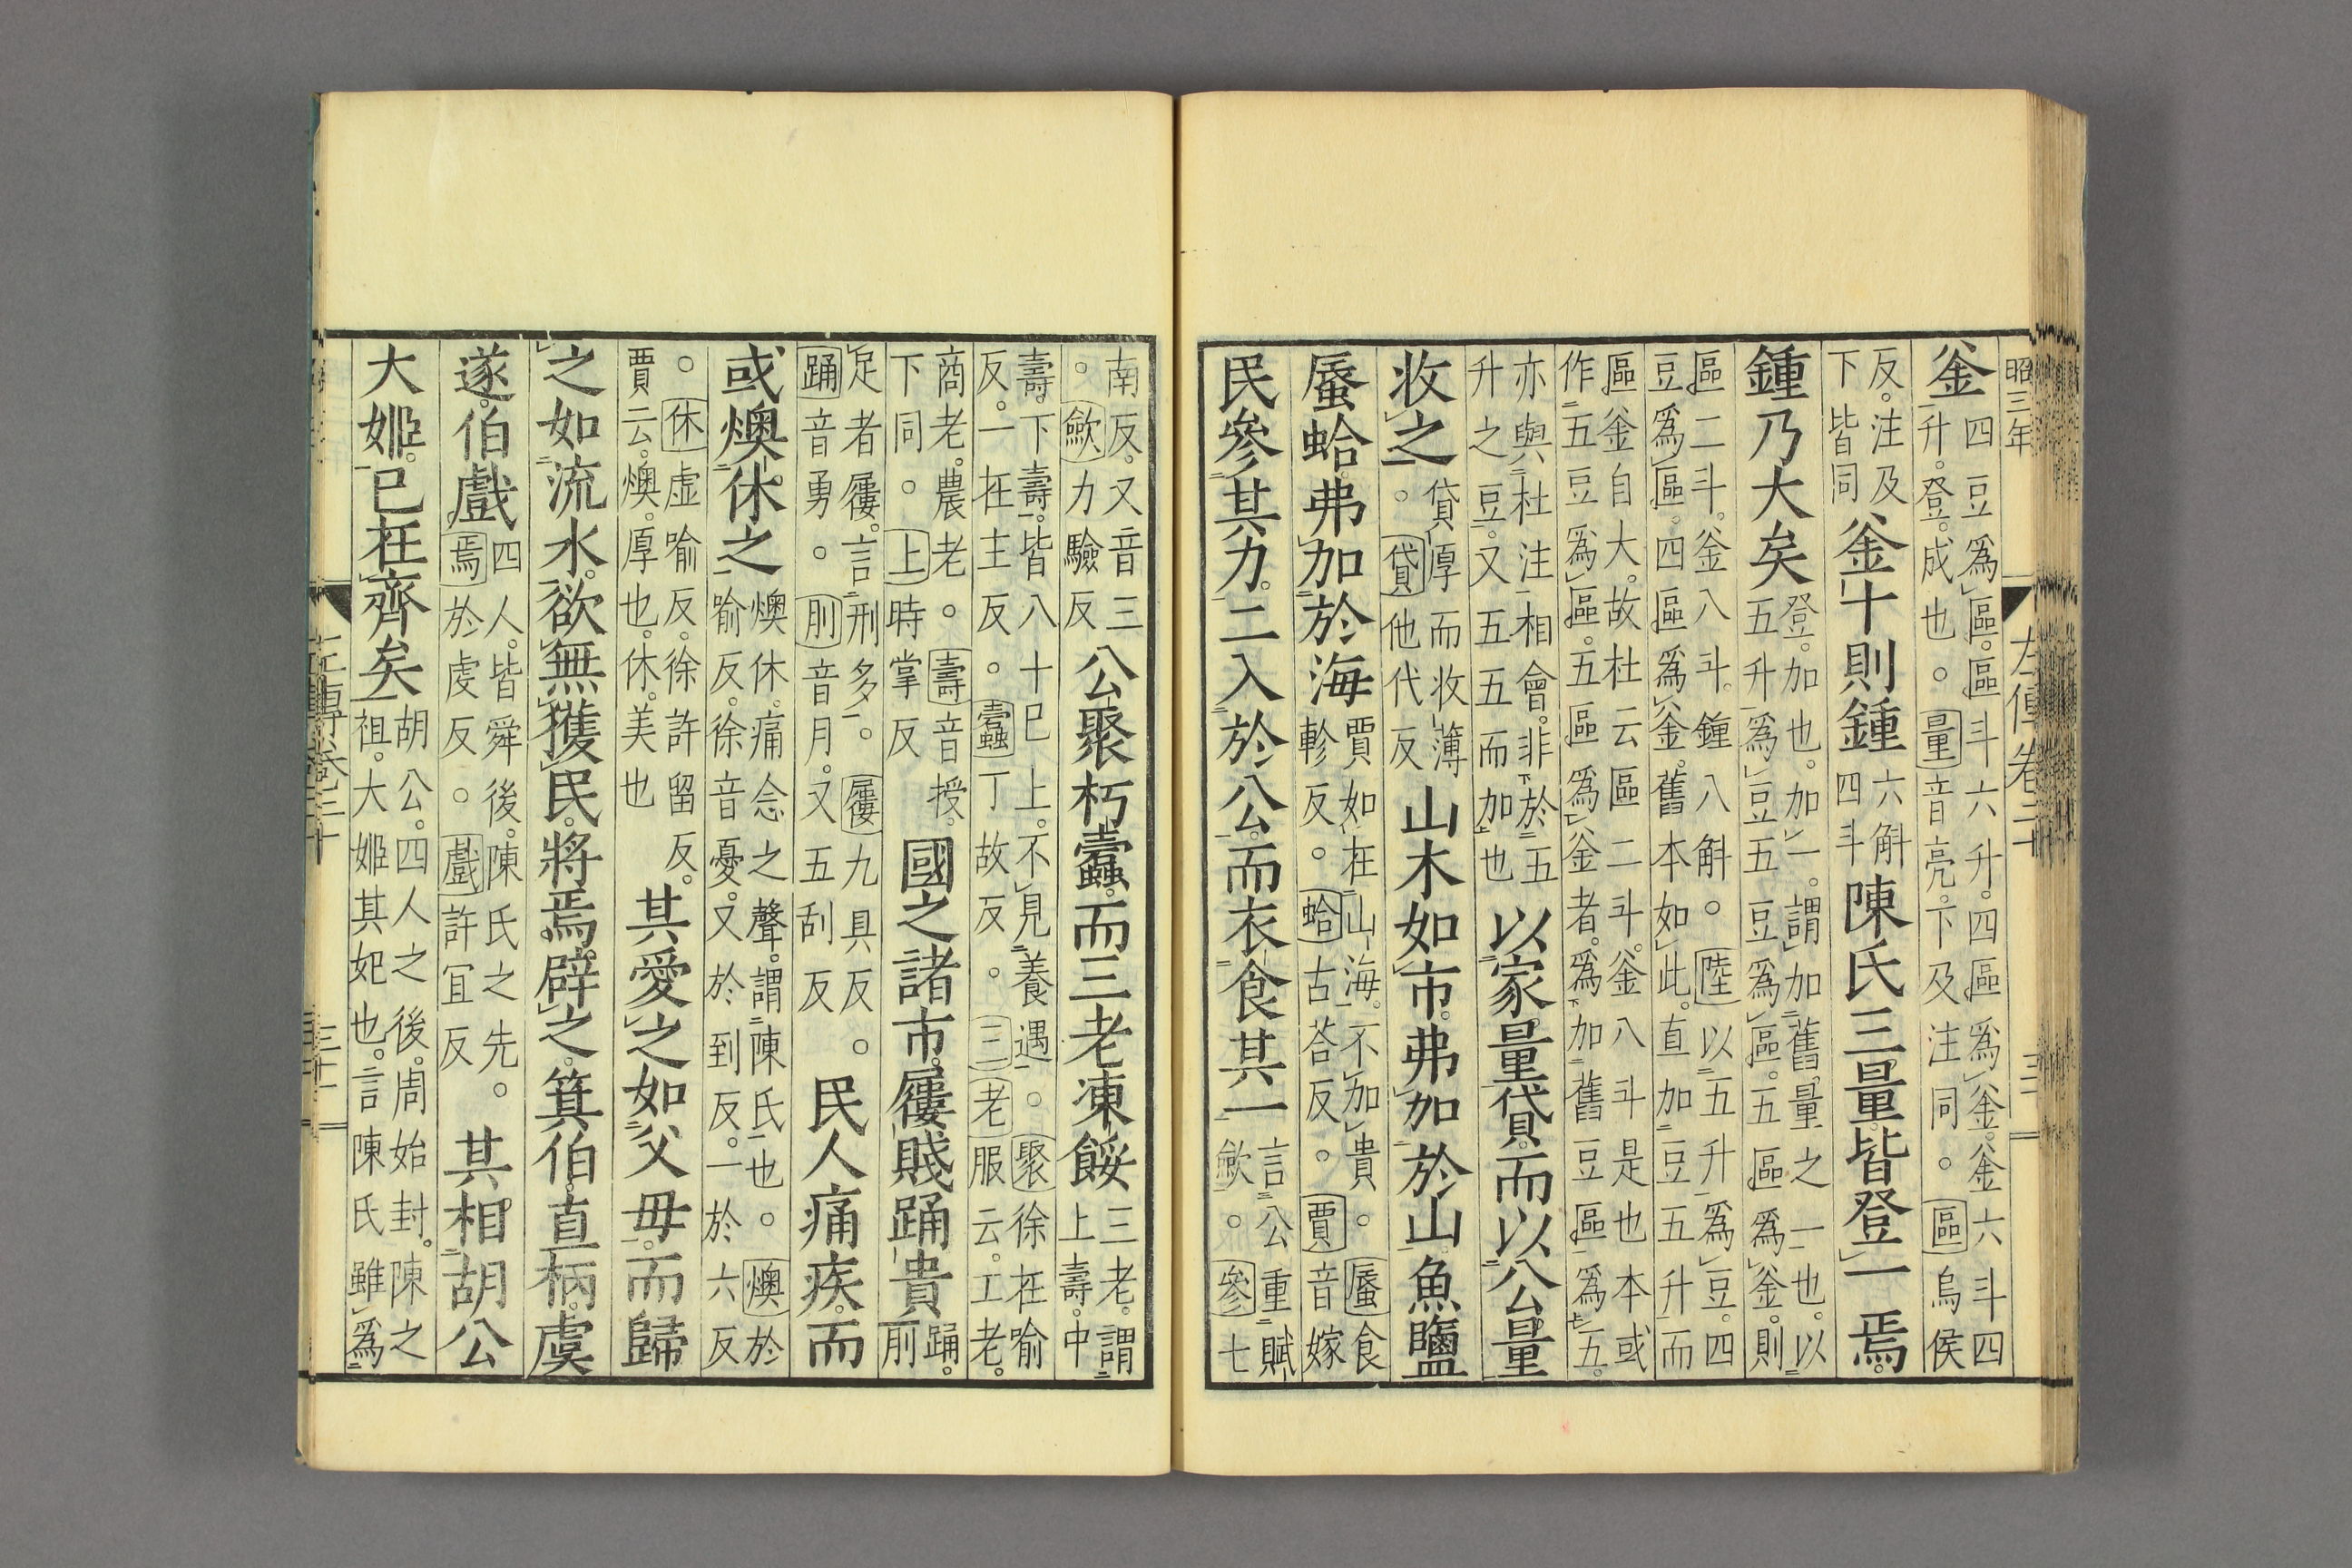 昭三年
左傳卷二十
釜四豆爲區區斗六升四區爲釜釜六斗四升登成也。量音亮下及注同。區烏侯
反注及下皆同釜十則鍾六斛四斗陳氏三量皆登一焉
鍾乃大矣登加也加一謂加舊量之一也以五升爲豆五豆爲區五區爲釜則
區二斗釜八斗鍾八斛。陸以五升爲豆四豆爲區四區爲釜舊本如此直加豆五升而
區釜自大故杜云區二斗釜八斗是也本或作五豆爲區五區爲釜者爲加舊豆區爲五
亦與杜注相會非於五升之豆又五五而加也以家量貸而以公量
收之貸厚而收薄。貸他代反山木如市弗加於山魚鹽
蜃蛤弗加於海賈如在山海不加貴。蜃食軫反。蛤古荅反。賈音嫁
民參其力二入於公而衣食其一言公重賦斂。參七
南反又音三。斂力驗反公聚朽蠹而三老凍餒三老謂上壽中
壽下壽皆八十已上不見養遇。聚徐在喻反一在主反。蠹丁故反。三老服云工老
商老農老。壽音授下同。上時掌反國之諸市屨賤踊貴踊刖
足者屨言刑多。屨九具反。踊音勇。刖音月又五刮反民人痛疾而
或燠休之燠休痛念之聲謂陳氏也。燠於喻反徐音憂又於到反一於六反
。休虛喻反徐許留反賈云燠厚也休美也其愛之如父母而歸
之如流水欲無獲民將焉辟之箕伯直柄虞
遂伯戲四人皆舜後陳氏之先。焉於虔反。戲許宜反其相胡公
大姬已在齊矣胡公四人之後周始封陳之祖大姬其妃也言陳氏雖爲